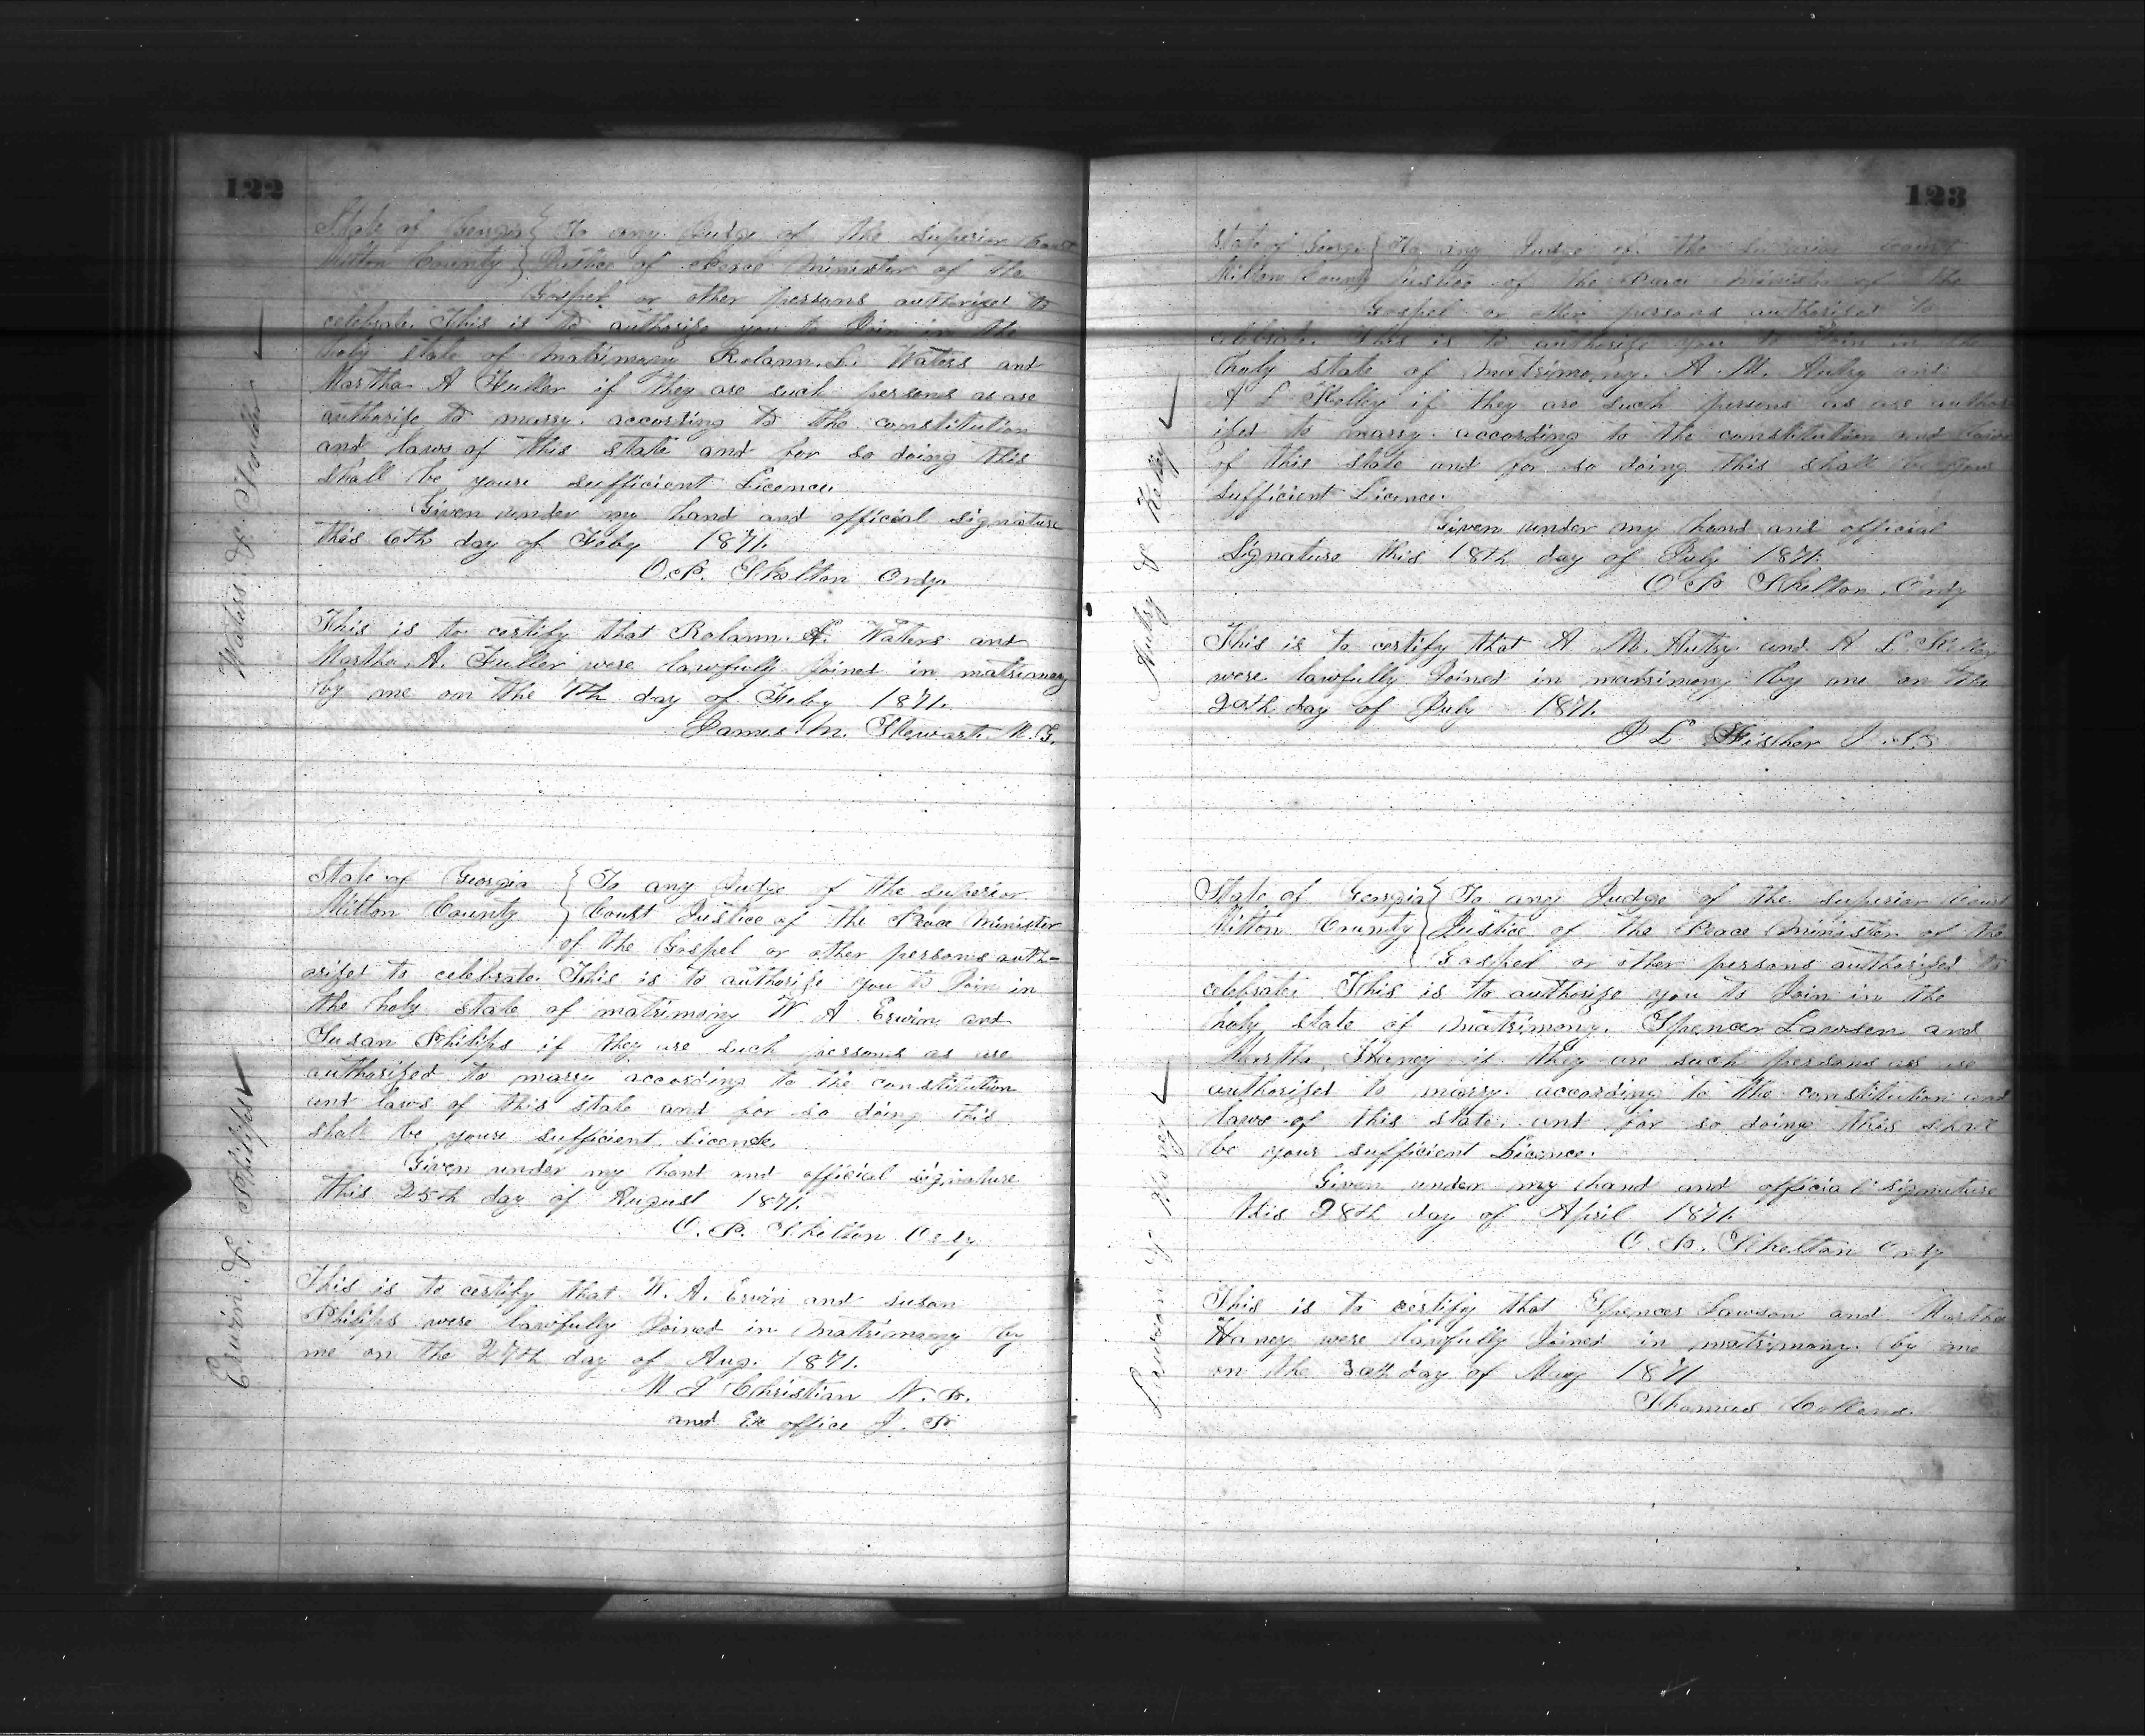 122
State of Georgia } To any Judge of the Superior Court
Milton County } Justice of Peace Minister of the
Gospel or other persons authorized to
celebrate. This is to authorize you to Join in the
holy state of Matrimony Rolann. L. Waters and
Martha A Fuller if they are such persons as are
authorize to marry. according to the constitution
and laws of this state and for so doing this
shall be yours sufficient Licence.
Given under my hand and official signature
this 6th day of Feby 1871.
O.P. Skelton Ordy.
Waters & Fuller
This is to certify that Rolann. L. Waters and
Martha. A. Fuller were lawfully Joined in matrimony
by me on the 7th day of Feby 1871.
James M. Stewart. M. G.
State of Georgia } To any Judge of the superior
Milton County } Court Justice of the Peace Minister
of the Gospel or other persons auth-
orized to celebrate. This is to authorize you to Join in
the holy state of matrimony W A Erwin and
Susan Philips if they are such persons as are
authorized to marry according to the constitution
and laws of this state and for so doing this
shall be yours sufficient Licence.
Given under my hand and official signature
this 25th day of August 1871.
O. P. Skelton Ordy
Erwin & Philips
This is to certify that W. A. Erwin and Susan
Philips were lawfully Joined in Matrimony by
me on the 27th day of Aug. 1871.
M J Christian N. P.
and Ex office J. P.
123
State of Georgia } To any Judge of the Superior Court
Milton County } Justice of the Peace Minister of the
Gospel or other persons authorized to
celebrate. This is to authorize you to Join in the
holy state of Matrimony. A. M. Autry and
A L Kelley if they are such persons as are author
ized to marry. according to the constitution and laws
of this state and for so doing this shall be your
sufficient Licence.
Given under my hand and official
Signature this 18th day of July 1871.
O P. Skelton. Ordy
Autry & Kelley
This is to certify that A M. Autry and A L Kelley
were lawfully Joined in matrimony by me on the
20th day of July 1871.
P L Fischer J. P.
State of Georgia } To any Judge of the Superior Court
Milton County } Justice of the Peace Minister of the
Gospel or other persons authorized to
celebrate. This is to authorize you to Join in the
holy state of Matrimony. Spencer Lawson and
Martha Haney if they are such persons as are
authorized to marry. according to the constitution and
laws of this state. and for so doing this shall
be your sufficient Licence.
Given under my hand and official signature
this 28th day of April 1871.
O. P. Skelton Ordy
Lawson & Haney
This is to certify that Spencer Lawson and Martha
Haney were lawfully Joined in matrimony. by me
on the 30th day of May 1871
Thomas Collens.